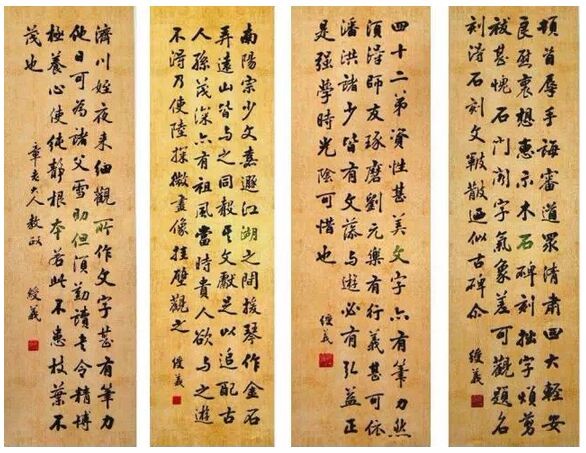 頓首辱手誨審道眾清肅四大輕安
良慰想惠示木石碑刻拙字煩
甚愧石門閑字氣象差可觀題名
刻得石刻文皴散逼似古碑尒
四十二弟資性甚美文字亦有筆力然
須得師友琢磨劉元樂有行義甚可依
潘洪諸少皆有文藻与遊必有弘益正
是強學時光陰可惜也
南陽宗少文嘉遯江湖之間援琴作金石
弄遠山皆与之同聲其文獻足以追配古
人孫茂深亦有祖風當時貴人欲与之遊
不得乃使陸探微畫像挂壁觀之
濟川姪夜来細觀所作文字甚有筆力
他日可為諸父雪但須勤讀書令精博
極養心使純靜根本若此不患枝葉不
茂也